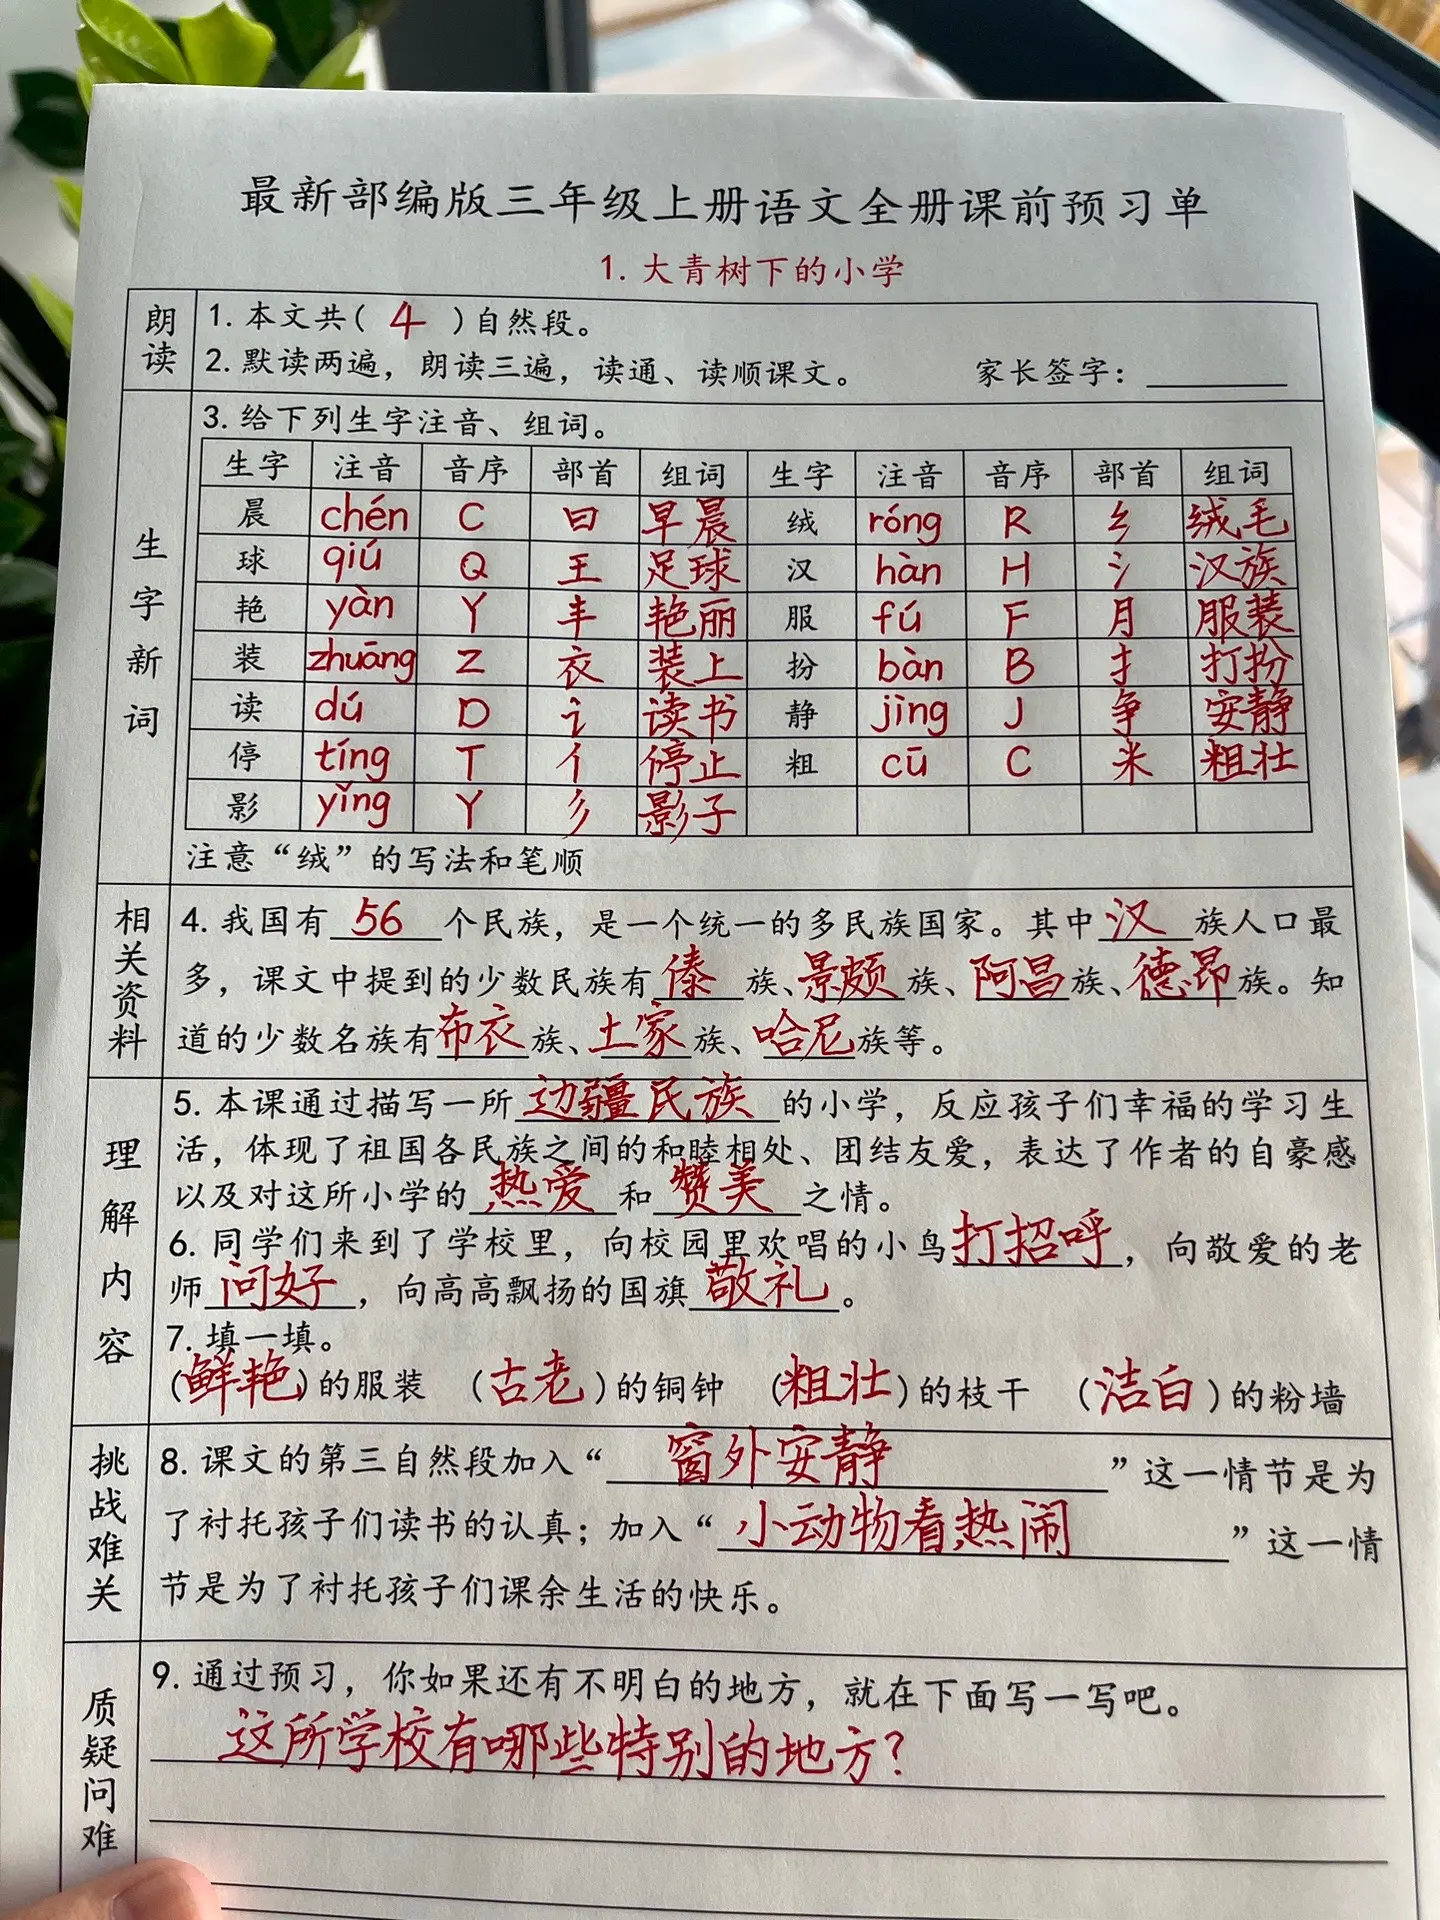 最新部编版三年级上册语文全册课前预习单
1. 大青树下的小学
朗读
1. 本文共( 4 )自然段。
2. 默读两遍，朗读三遍，读通、读顺课文。 家长签字：
生字新词
3. 给下列生字注音、组词。
生字 注音 音序 部首 组词 生字 注音 音序 部首 组词
晨 chén C 曰 早晨 绒 róng R 纟 绒毛
球 qiú Q 王 足球 汉 hàn H 氵 汉族
艳 yàn Y 丰 艳丽 服 fú F 月 服装
装 zhuāng Z 衣 装上 扮 bàn B 扌 打扮
读 dú D 讠 读书 静 jìng J 争 安静
停 tíng T 亻 停止 粗 cū C 米 粗壮
影 yǐng Y 彡 影子
注意“绒”的写法和笔顺
相关资料
4. 我国有56个民族，是一个统一的多民族国家。其中汉族人口最
多，课文中提到的少数民族有傣族、景颇族、阿昌族、德昂族。知
道的少数名族有布衣族、土家族、哈尼族等。
理解内容
5. 本课通过描写一所边疆民族的小学，反应孩子们幸福的学习生
活，体现了祖国各民族之间的和睦相处、团结友爱，表达了作者的自豪感
以及对这所小学的热爱和赞美之情。
6. 同学们来到了学校里，向校园里欢唱的小鸟打招呼，向敬爱的老
师问好，向高高飘扬的国旗敬礼。
7. 填一填。
(鲜艳)的服装 (古老)的铜钟 (粗壮)的枝干 (洁白)的粉墙
挑战难关
8. 课文的第三自然段加入“窗外安静”这一情节是为
了衬托孩子们读书的认真；加入“小动物看热闹”这一情
节是为了衬托孩子们课余生活的快乐。
质疑问难
9. 通过预习，你如果还有不明白的地方，就在下面写一写吧。
这所学校有哪些特别的地方？